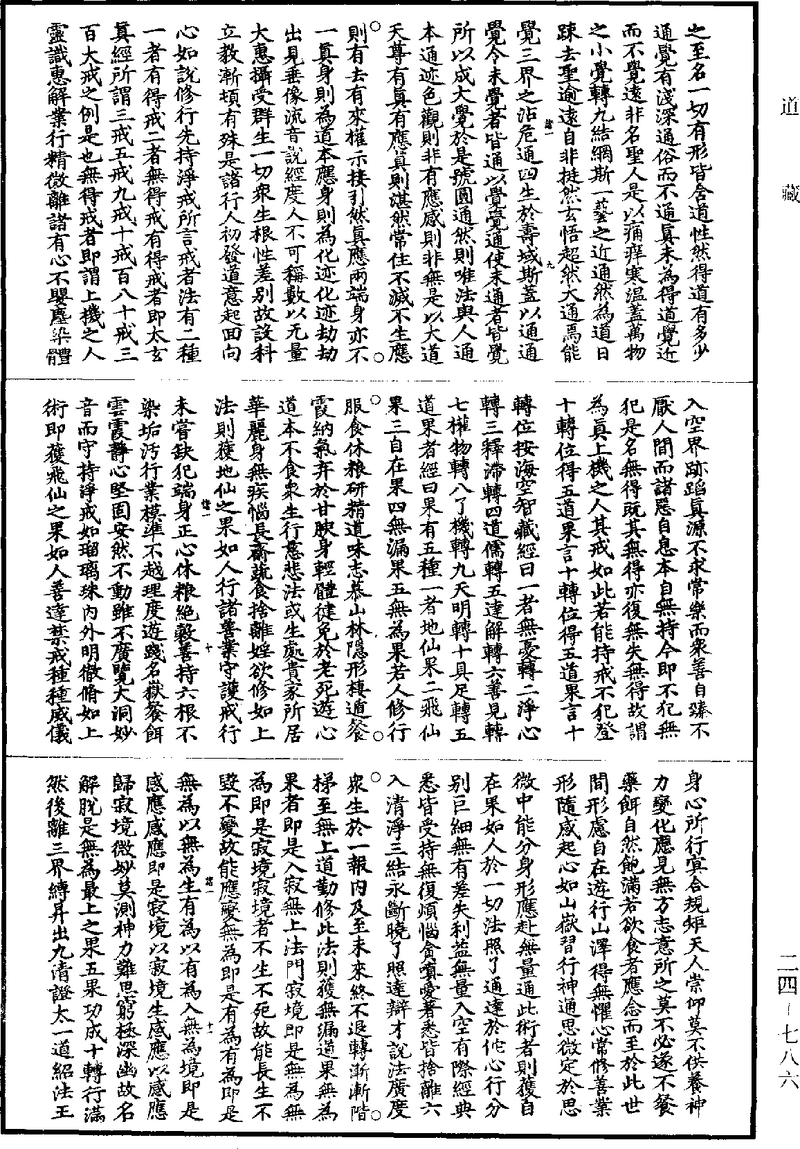 道藏
之至名一切有形皆含道性然得道有多少
通覺有淺深通俗而不通真未為得道覺近
而不覺遠非名聖人是以痛痒寒温蓋萬物
之小覺轉九結網斯一藝之近通然為道日
踈去聖逾遠自非挺然玄悟超然大通焉能
覺三界之沾危通四生於壽域斯蓋以通通
覺令未覺者皆通以覺覺通使未通者皆覺
所以成大覺於是號圓通然則唯法與人通
本通迹色觀則非有應感則非無是以大道
天尊有真有應真則湛然常住不滅不生應
則有去有來權示接引然真應兩端身亦不
一真身則為道本應身則為化迹化迹劫劫
出見垂像流音說經度人不可稱數以无量
大惠攝受群生一切衆生根性差别故設科
立教漸頓有殊是諸行人初發道意起迴向
心如說修行先持淨戒所言戒者法有二種
一者有得戒二者無得戒有得戒者即太玄
真經所謂三戒五戒九戒十戒百八十戒三
百大戒之例是也無得戒者即謂上機之人
靈識惠解業行精微離諸有心不嬰塵染體
入空界跡蹈真源不求常樂而衆善自臻不
厭人間而諸惡自息本自無持今即不犯無
犯是名無得既其無得亦復無失無得故謂
為真上機之人其戒如此若能持戒不犯登
十轉位得五道果言十轉位得五道果言十
轉位按海空智藏經曰一者無憂轉二淨心
轉三釋滯轉四道儒轉五達解轉六善見轉
七權物轉八了機轉九天明轉十具足轉五
道果者經曰果有五種一者地仙果二飛仙
果三自在果四無漏果五無為果若人修行
服食休粮研精道味志慕山林隱形穪遁餐
霞納氣弃於甘腴身輕體健免於老死遊心
道本不食衆生行慈悲法或生處貴家所居
華麗身無疾惱長齋蔬食捨離婬欲修如上
法則獲地仙之果如人行諸善業守護戒行
未嘗缺犯端身正心休粮絶穀善持六根不
染垢汚行業模準不越理度遊踐名嶽餐餌
雲霞靜心堅固安然不動雖不廣覽大洞妙
音而守持淨戒如瑠璃珠内外明徹脩如上
術即獲飛仙之果如人善達禁戒種種威儀
身心所行冥合規矩天人崇仰莫不供養神
力變化應見無方志意所之莫不必遂不餐
藥餌自然飽滿若欲食者應念而至於此世
間形慮自在遊行山澤得無懼心常修善業
形隨感起心如山嶽習行神通思微定於思
微中能分身形應赴無量通此術者則獲自
在果如人於一切法照了通達於佗心行分
别巨細無有差失利益無量入空有際經典
悉皆受持無復煩惱貪嗔愛著悉皆捨離六
入清淨三結永斷曉了照達辯才說法廣度
衆生於一報内及至未來終不退轉漸漸階
梯至無上道勤修此法則獲無漏道果無為
果者即是入寂無上法門寂境即是無為無
為即是寂境寂境者不生不死故能長生不
毀不變故能應變無為即是有為有為即是
無為以無為生有為以有為入無為境即是
感應感應即是寂境以寂境生感應以感應
歸寂境微妙莫測神力難思窮極深幽故名
解脫是無為最上之果五果功成十轉行滿
然後離三界縛昇出九清證太一道紹法王
二四－七八六